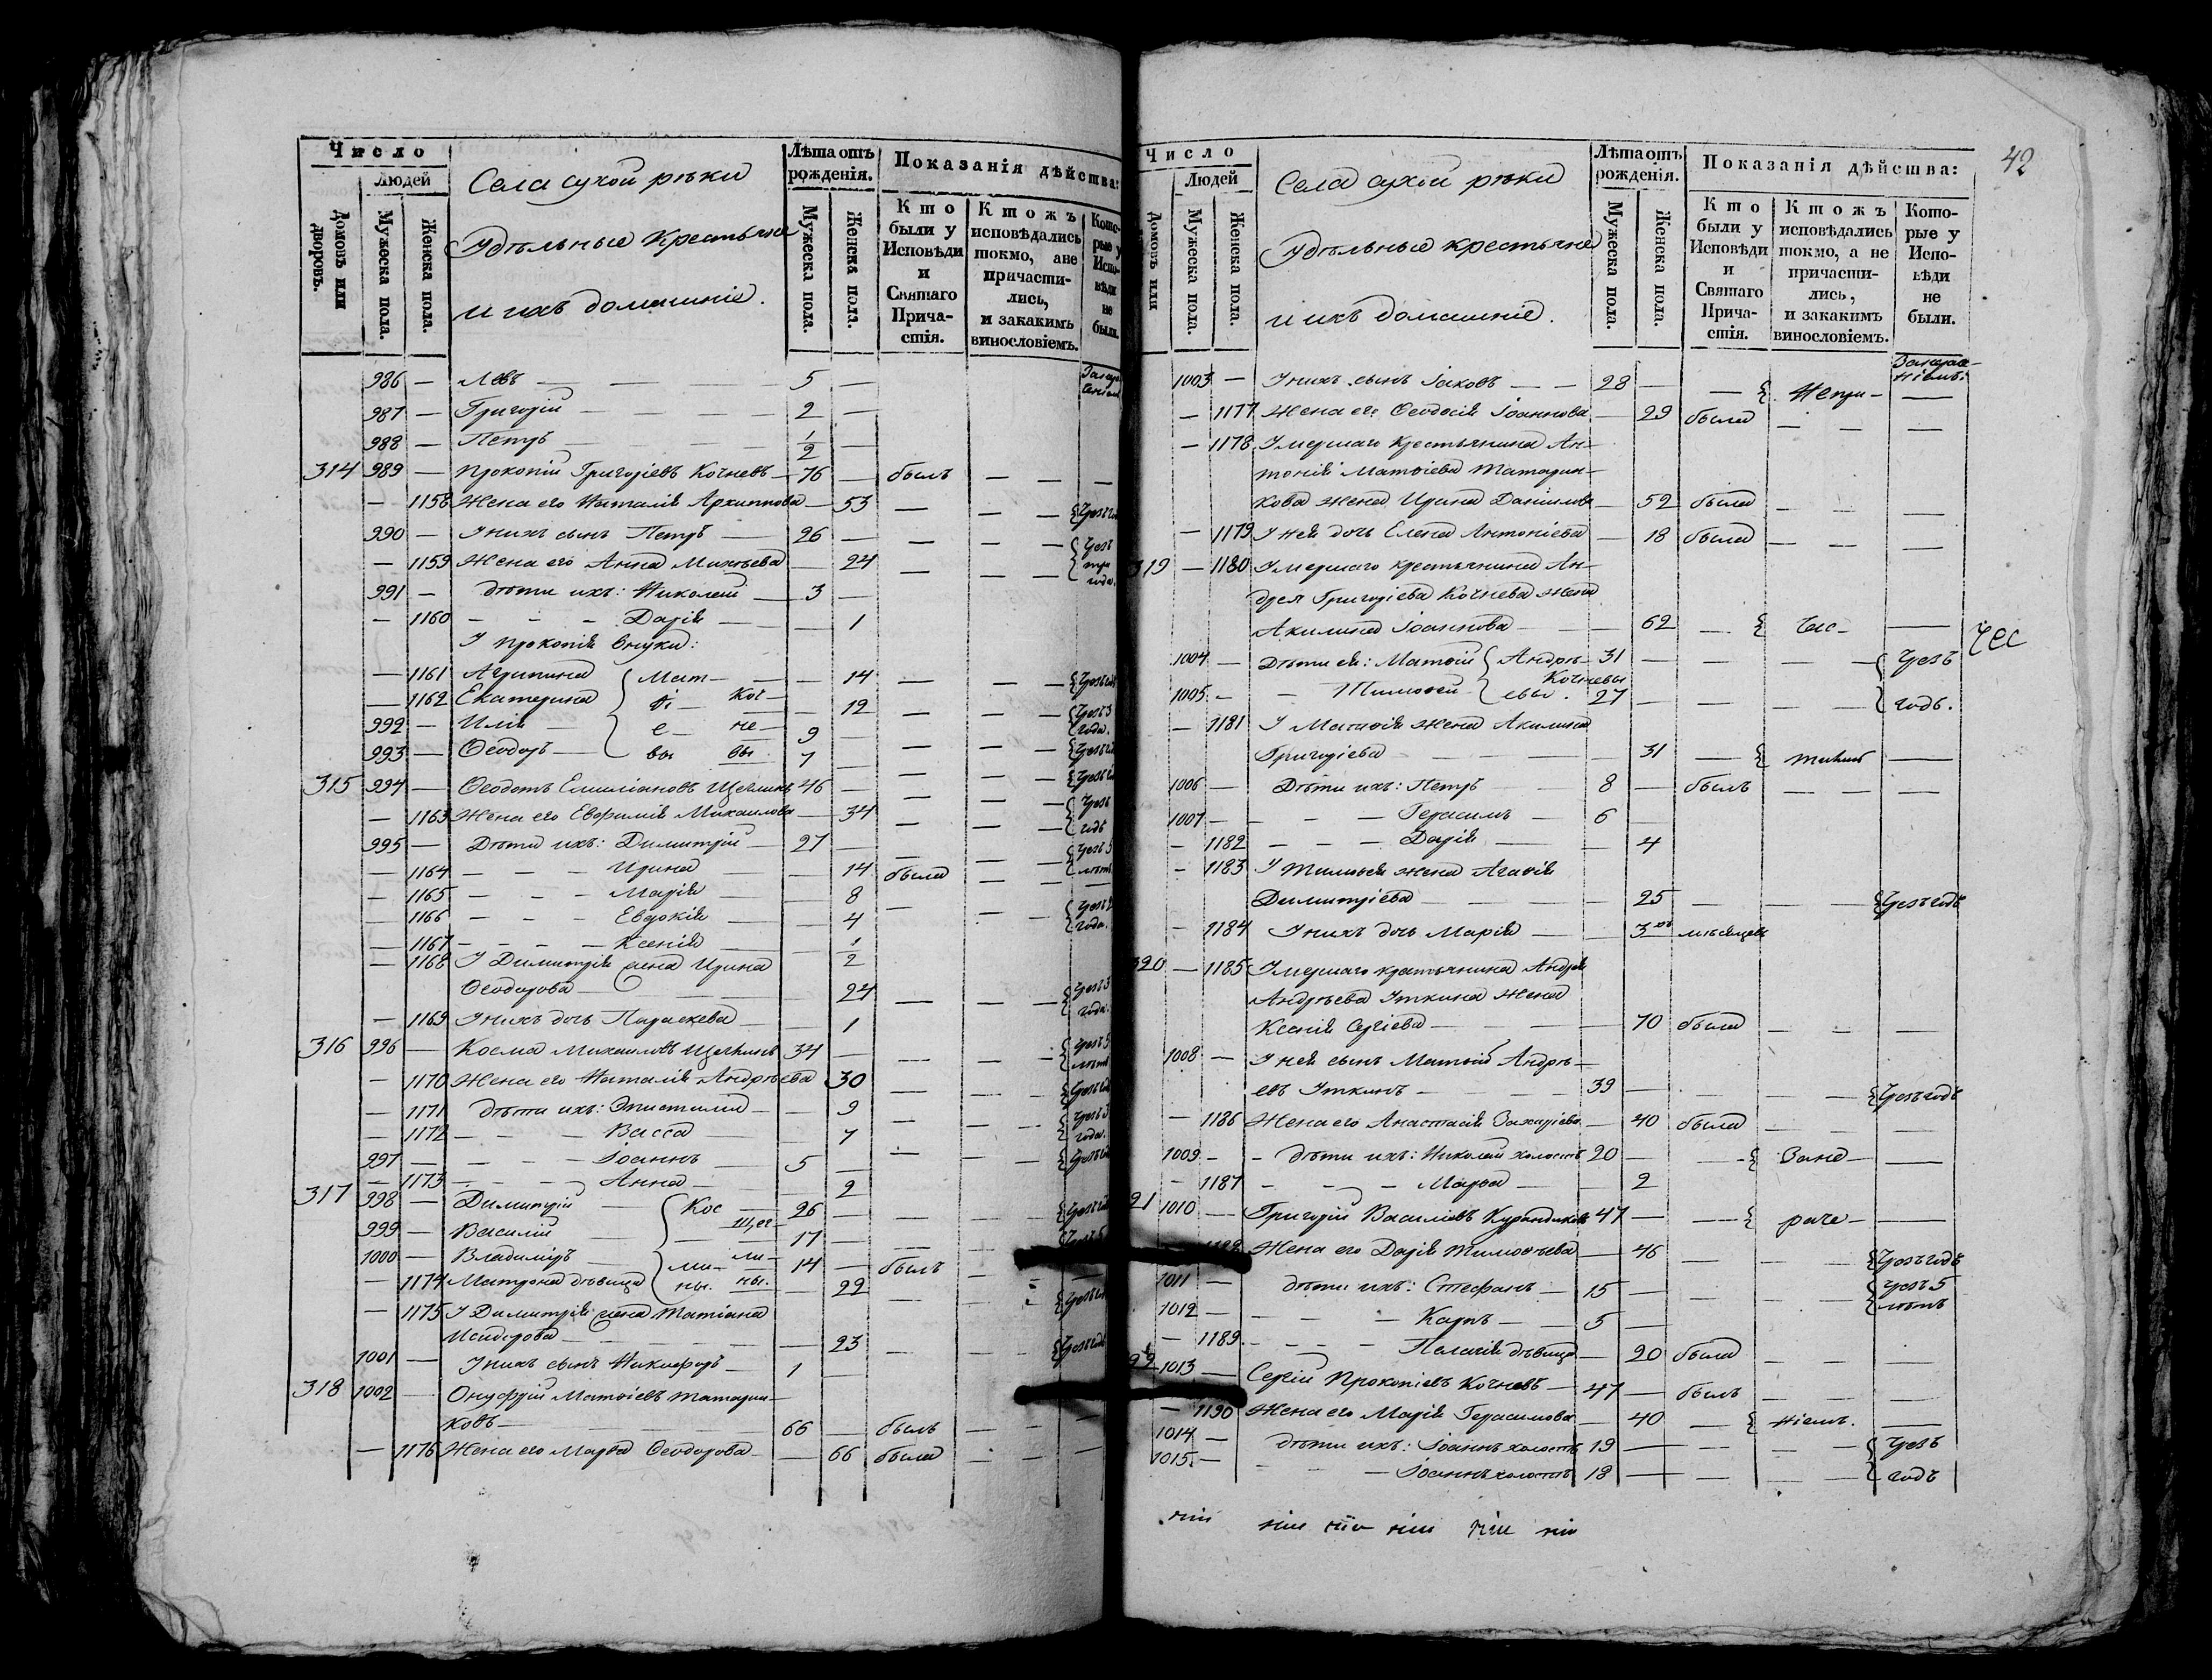 Число
Людей
Домовъ или дворовъ.
Мужеска пола.
Женска пола.
Села сухой рѣки
Удѣльные крестьяне
и ихъ домашніе.
Лѣта отъ рожденія.
Мужеска пола.
Женска пола.
Показанія дѣйства:
Кто были у Исповѣди и Святаго Причастія.
Ктожъ исповѣдались токмо, ане причастились, и закакимъ винословіемъ.
Которые у Исповѣди не были.
986 — Левъ — — — 5 —
987 — Григорій — — — 2 —
988 — Петръ — — — 1/2 —
314 989 — Прокопій Григоріевъ Кочневъ — 76 — былъ — — —
— 1158 Жена его Наталія Архиппова — 53 — — —
990 — У нихъ сынъ Петръ — 26 — — — —
— 1159 Жена его Анна Михѣева — 24 — — — Чрезъ три года.
991 — дѣти ихъ: Николай — 3 —
— 1160 — — — Дарія — — 1
У Прокопія внуки:
— 1161 Агрипина Мат- — 14 — — —
— 1162 Екатерина ѳі- Коч- — 12 — — — Чрезъ 3 года.
992 — Илія — е- не- 9 — — —
993 — Ѳеодоръ — вы вы 7 — — —
315 994 — Ѳеодотъ Емиліановъ Щеглинъ 46 — — —
— 1163 Жена его Евфимія Михаилова — 34 — — — Чрезъ годъ
995 — Дѣти ихъ: Димитрій — 27 — — — — Чрезъ 5 лѣтъ
— 1164 — — — Ирина — 14 была — — —
— 1165 — — — Марія — 8 — — — Чрезъ 2 года.
— 1166 — — — Евдокія — 4
— 1167 — — — Ксенія — 1/2
— 1168 У Димитрія жена Ирина
Ѳеодорова — — — 24 — — — Чрезъ 3 года.
— 1169 У нихъ дочь Параскева — — 1
316 996 — Косма Михаиловъ Щеглинъ 34 — — — — Чрезъ 5 лѣтъ
— 1170 Жена его Наталія Андреѣва 30 — — —
— 1171 дѣти ихъ: Эпистимія — — 9 — — — Чрезъ 3 года.
— 1172 — — — Васса — — 7 — — —
997 — — — — Іоаннъ — 5 —
— 1173 — — — Анна — — 2
317 998 — Димитрій — Кос- 26 — — — —
999 — Василій — Щег- 17 — — —
1000 — Владиміръ ми- ли- 14 — былъ — — —
— 1174 Матрона дѣвица ны. ны. — 22 — — —
— 1175 У Димитрія жена Татіана
Исидорова — — — — 23 — — —
1001 — У нихъ сынъ Никифоръ — 1 —
318 1002 — Онуфрій Матѳіевъ Татарин-
ковъ — — — 66 — былъ — — —
— 1176 Жена его Марѳа Ѳеодорова — — 66 была — — —
42
Число
Людей
Домовъ или
Мужеска пола.
Женска пола.
Села сухой рѣки
Удѣльные крестьяне
и ихъ домашніе.
Лѣта отъ рожденія.
Мужеска пола.
Женска пола.
Показанія дѣйства:
Кто были у Исповѣди и Святаго Причастія.
Ктожъ исповѣдались токмо, а не причастились, и закакимъ винословіемъ.
Которые у Исповѣди не были.
1003 — У нихъ сынъ Іаковъ — — 28 — — Непри- —
— 1177 Жена его Ѳеодосія Іоаннова — 29 была — — —
— 1178 Умершаго крестьянина Ан-
тонія Матѳіева Татарин-
кова жена Ирина Даніилова — 52 была — — —
— 1179 У ней дочь Елена Антоніева — 18 была — — —
319 — 1180 Умершаго крестьянина Ан-
дрея Григоріева Кочнева жена
Акилина Іоаннова — — 62 — час- —
чес
1004 — Дѣти ея: Матѳій Андрѣ- 31 — — — — Чрезъ
Кочневы
1005 — — Тимоѳей евы. 27 — — — — годъ.
— 1181 У Матѳія жена Акилина
Григоріева — — — 31 — —
1006 — Дѣти ихъ: Петръ — 8 — былъ — — —
1007 — — — — Герасимъ — 6 —
— 1182 — — — Дарія — — 4
— 1183 У Тимоѳея жена Агаѳія
Димитріева — — — 25 — — — Чрезъ годъ
— 1184 У нихъ дочь Марія — — 3хъ мѣсяцевъ
320 — 1185 Умершаго крестьянина Андрея
Андрѣева Уткина жена
Ксенія Сергіева — — — 70 была — — —
1008 — У ней сынъ Матѳій Андрѣ-
евъ Уткинъ — — — 39 — — — Чрезъ годъ
— 1186 Жена его Анастасія Захаріева — 40 была — — —
1009 — — дѣти ихъ: Николай холостъ 20 — — Занé- —
— 1187 — — — Марѳа — — 2
21 1010 — Григорій Василіевъ Курандиковъ 47 — — раче- —
1188 Жена его Дарія Тимоѳѣева — 46 — — — Чрезъ годъ
1011 — дѣти ихъ: Стефанъ — 15 — — — Чрезъ 5 лѣтъ
1012 — — — — Карпъ — 5 —
— 1189 — — — Пелагія дѣвица — 20 была — — —
22 1013 — Сергій Прокопіевъ Кочневъ — 47 — былъ — — —
— 1190 Жена его Марія Герасимова — 40 — ніемъ. —
1014 — дѣти ихъ: Іоаннъ холостъ 19 — — — Чрезъ
1015 — — — — Іоаннъ холостъ 18 — — — годъ